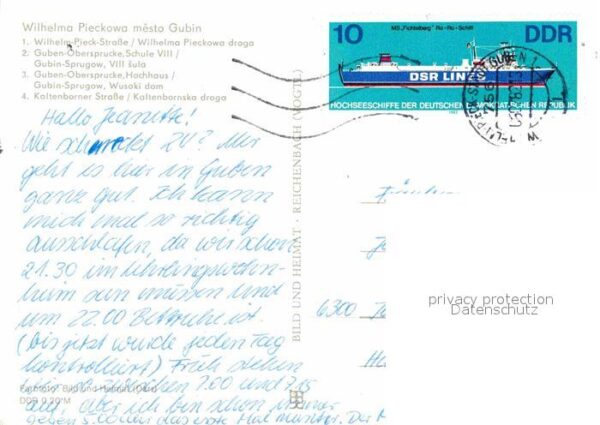 Wilhelma Pieckowa město Gubin
1. Wilhelm-Pieck-Straße / Wilhelma Pieckowa droga
2. Guben-Obersprucke, Schule VIII /
Gubin-Sprugow, VIII šula
3. Guben-Obersprucke, Hochhaus /
Gubin-Sprugow, Wusoki dom
4. Kaltenborner Straße / Kaltenbornska droga
10
MS „Fichtelberg“ Ro-Ro-Schiff
DDR
DSR LINES
HOCHSEESCHIFFE DER DEUTSCHEN DEMOKRATISCHEN REPUBLIK
1982
Hallo Jeanette!
Wie schmeckt ZV? Mir
geht es hier in Guben
ganz gut. Ich kann
mich mal so richtig
ausschlafen, da wir schon
21.30 im Lehrlingswohn-
heim sein müssen und
um 22.00 Bettruhe ist.
(bis jetzt wurde jeden Tag
kontrolliert) Früh stehen
wir so zwischen 7.00 und 7.15
auf, aber ich bin schon immer
gegen 5.00 das erste Mal munter. Der
BILD UND HEIMAT · REICHENBACH (VOGTL)
6300
privacy protection
Datenschutz
Farbfoto: Bild und Heimat
DDR 0,20 M